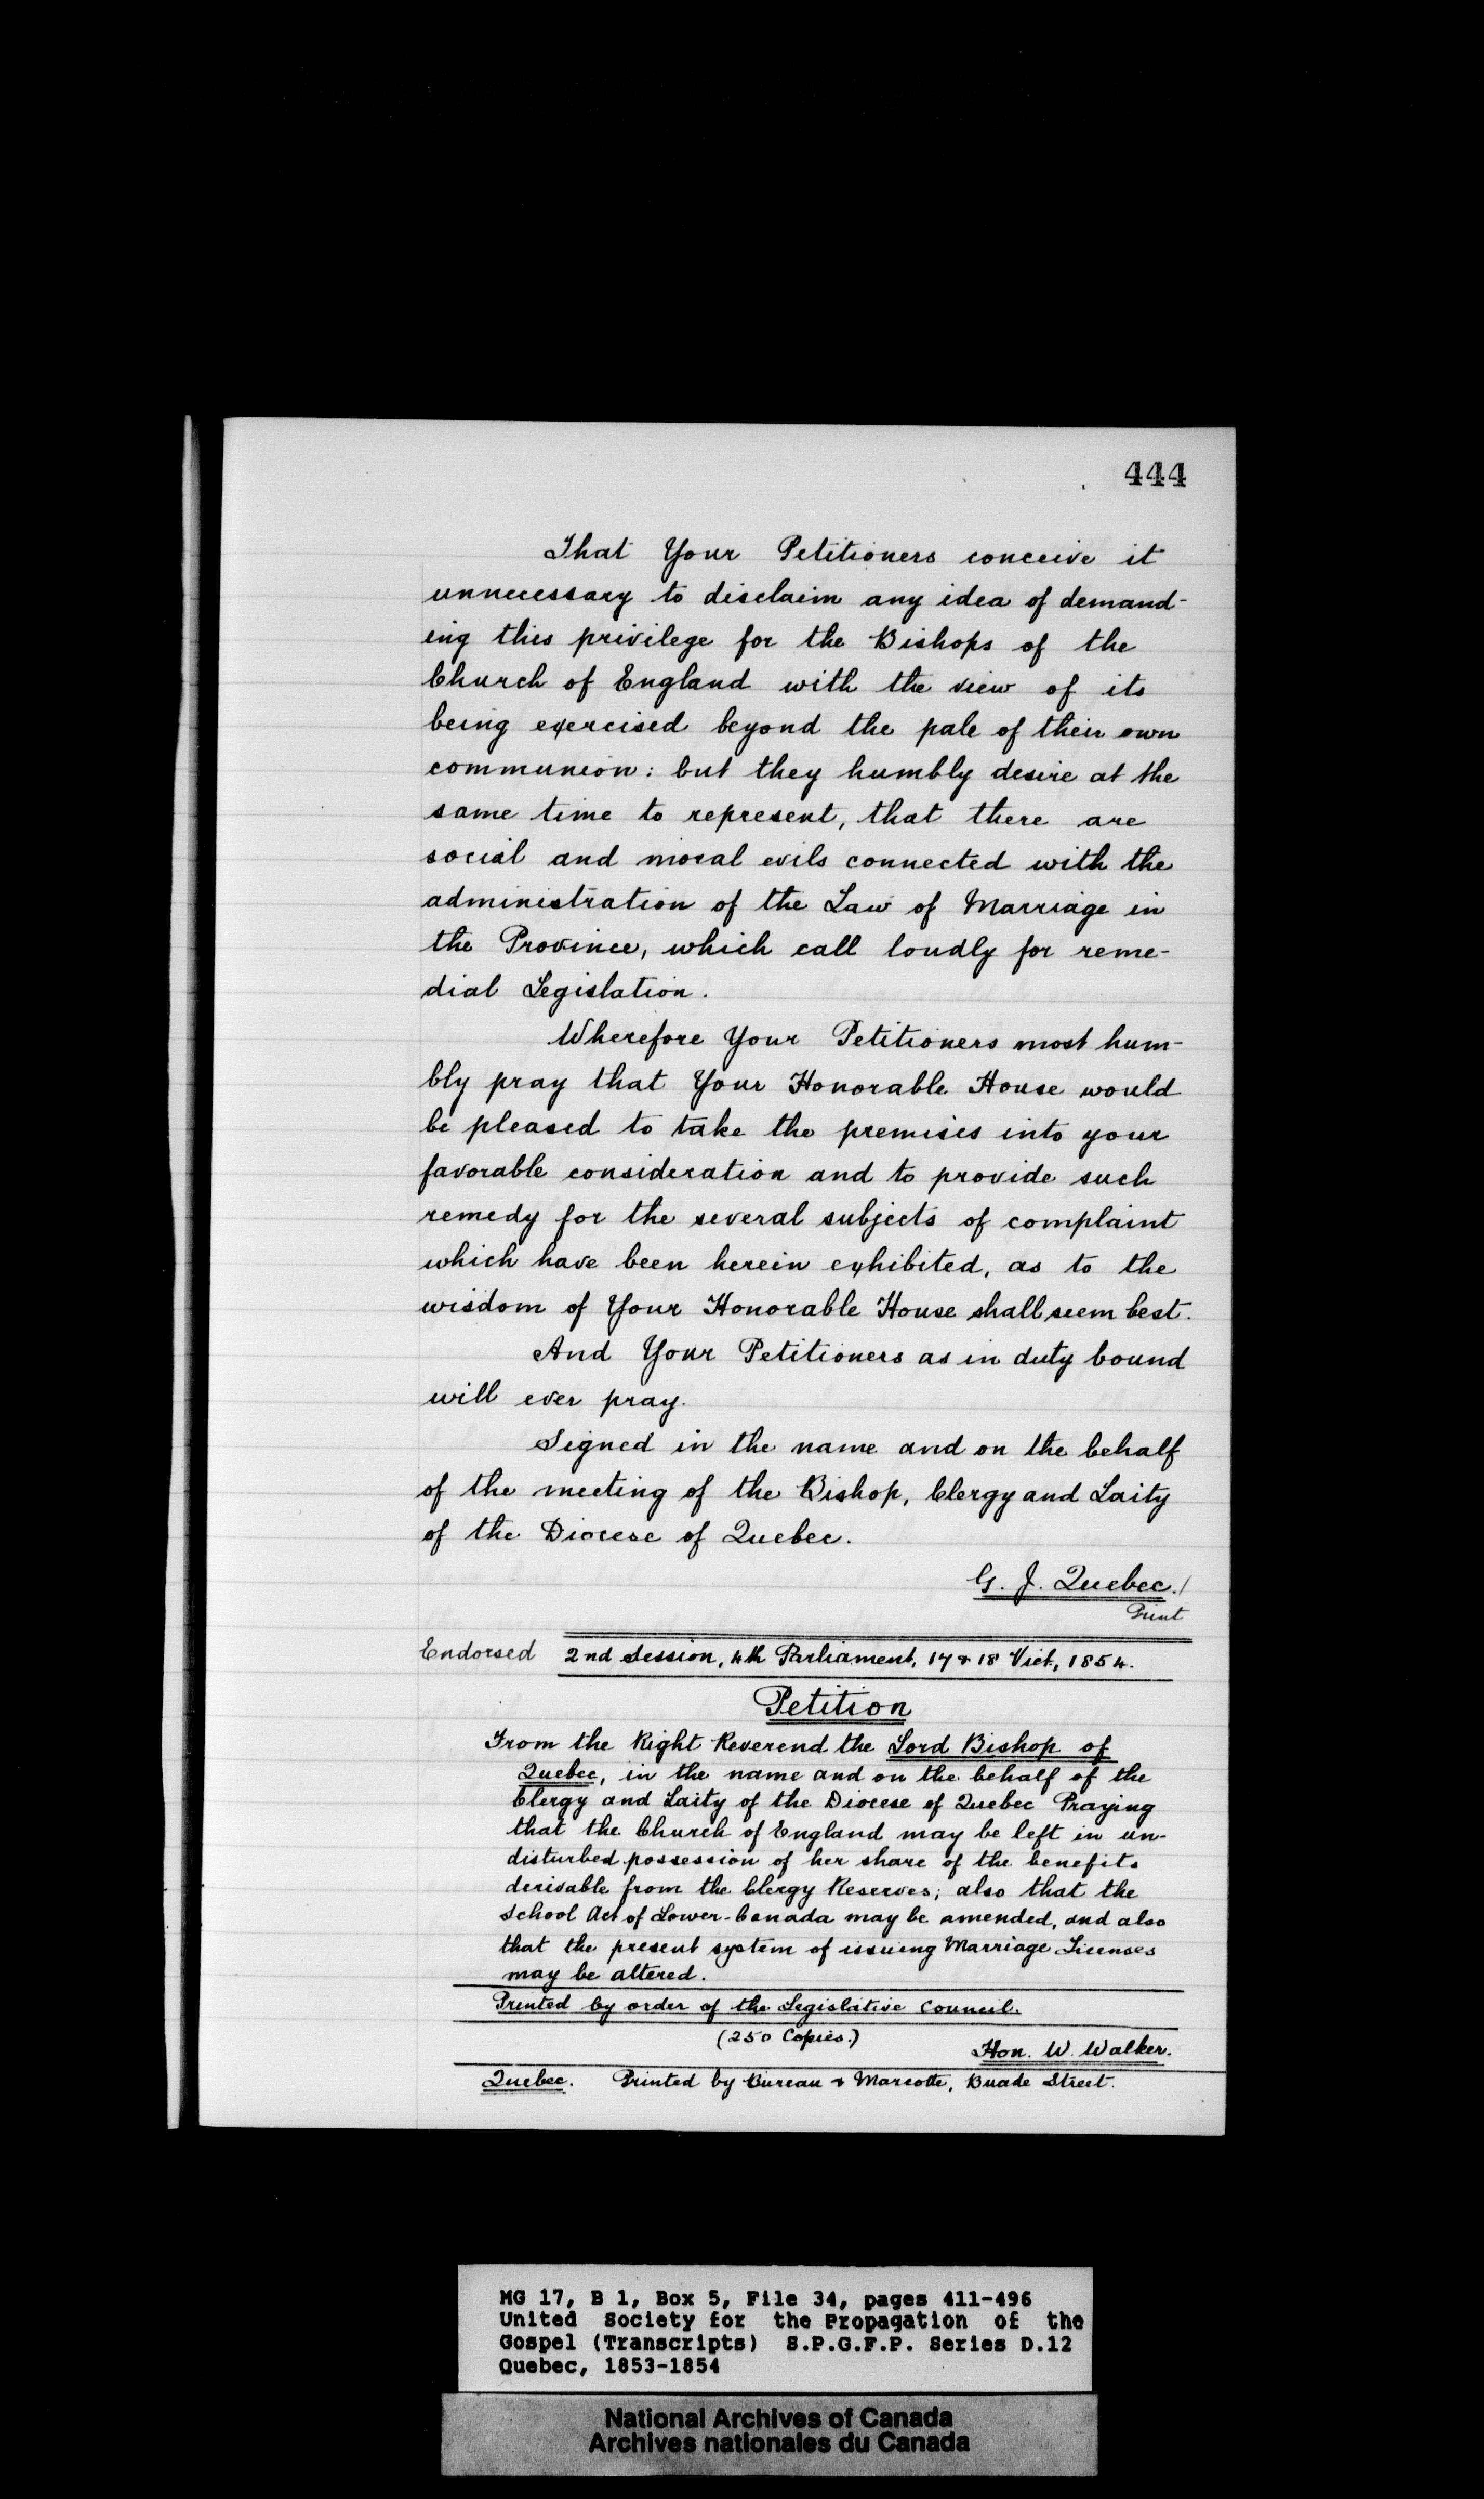 444
That Your Petitioners conceive it
unnecessary to disclaim any idea of demand-
ing this privilege for the Bishops of the
Church of England with the view of its
being exercised beyond the pale of their own
communion: but they humbly desire at the
same time to represent, that there are
social and moral evils connected with the
administration of the Law of Marriage in
the Province, which call loudly for reme-
dial Legislation.
Wherefore Your Petitioners most hum-
bly pray that Your Honorable House would
be pleased to take the premises into your
favorable consideration and to provide such
remedy for the several subjects of complaint
which have been herein exhibited, as to the
wisdom of Your Honorable House shall seem best.
And Your Petitioners as in duty bound
will ever pray.
Signed in the name and on the behalf
of the meeting of the Bishop, Clergy and Laity
of the Diocese of Quebec.
G. J. Quebec./
Print
Endorsed 2nd Session, 4th Parliament, 17 & 18 Vict, 1854.
Petition
From the Right Reverend the Lord Bishop of
Quebec, in the name and on the behalf of the
Clergy and Laity of the Diocese of Quebec Praying
that the Church of England may be left in un-
disturbed possession of her share of the benefits
derivable from the Clergy Reserves; also that the
School Act of Lower-Canada may be amended, and also
that the present system of issuing Marriage Licenses
may be altered.
Printed by order of the Legislative Council.
(250 Copies.)
Hon. W. Walker.
Quebec. Printed by Bureau & Marcotte, Buade Street.
MG 17, B 1, Box 5, File 34, pages 411-496
United Society for the Propagation of the
Gospel (Transcripts) S.P.G.F.P. Series D.12
Quebec, 1853-1854
National Archives of Canada
Archives nationales du Canada